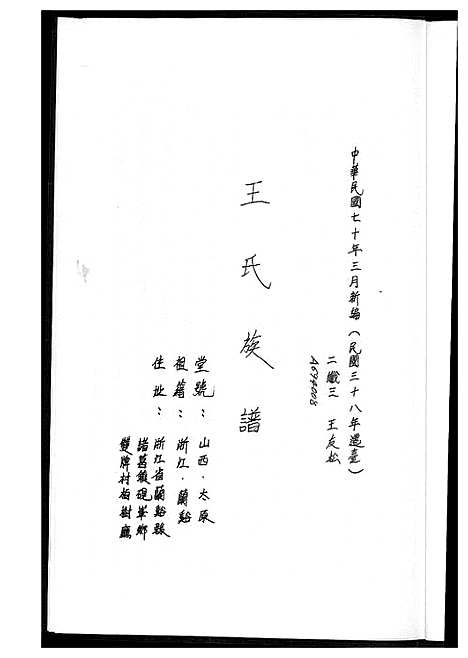 中華民國七十年三月新編(民國三十八年遷臺)
二鐵三 王友松
A694008
王氏族譜
堂號：山西．太原
祖籍：浙江．蘭谿
住址：浙江省蘭谿縣
諸葛鎮硯峯鄉
雙牌村柏樹廳